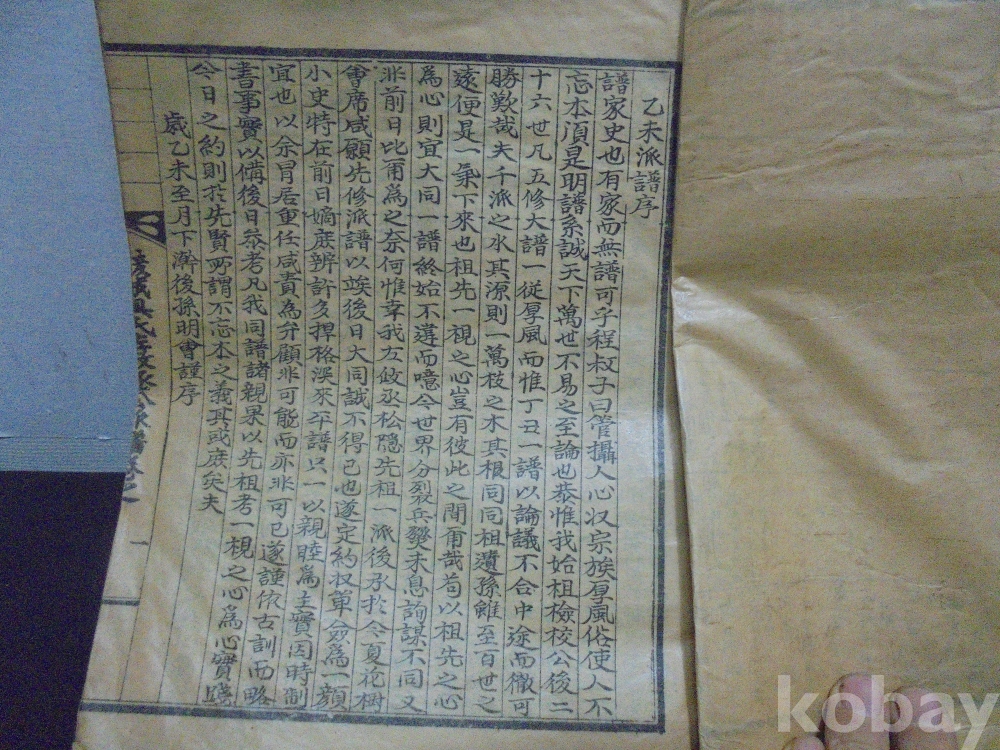 乙未派譜序
譜家史也有家而無譜可乎程叔子曰管攝人心収宗族厚風俗使人不
忘本須是明譜系誠天下萬世不易之至論也恭惟我始祖檢校公後二
十六世凡五修大譜一從厚風而惟丁丑一譜以論議不合中途而徹可
勝歎哉夫千派之水其源則一萬枝之木其根同同祖遺孫雖至百世之
遠便是一氣下來也祖先一視之心豈有彼此之間爾哉苟以祖先之心
為心則宜大同一譜終始不違而噫今世界分裂兵燹未息詢謀不同又
非前日比爾為之奈何惟幸我左攸丞松隱先祖一派後承於今夏花樹
會席咸願先修派譜以竢後日大同誠不得已也遂定約収單僉為一顔
小史特在前日嫡庶辨許多捍格浚來平譜只一以親睦為主實因時制
宜也以余冑居重任咸責為弁顧非可能而亦非可已遂謹依古訓而略
書事實以備後日叅考凡我同譜諸親果以先祖考一視之心為心實踐
今日之約則於先賢所謂不忘本之義其或庶矣夫
歲乙未至月下澣後孫明會謹序
派譜卷之一
一
kobay